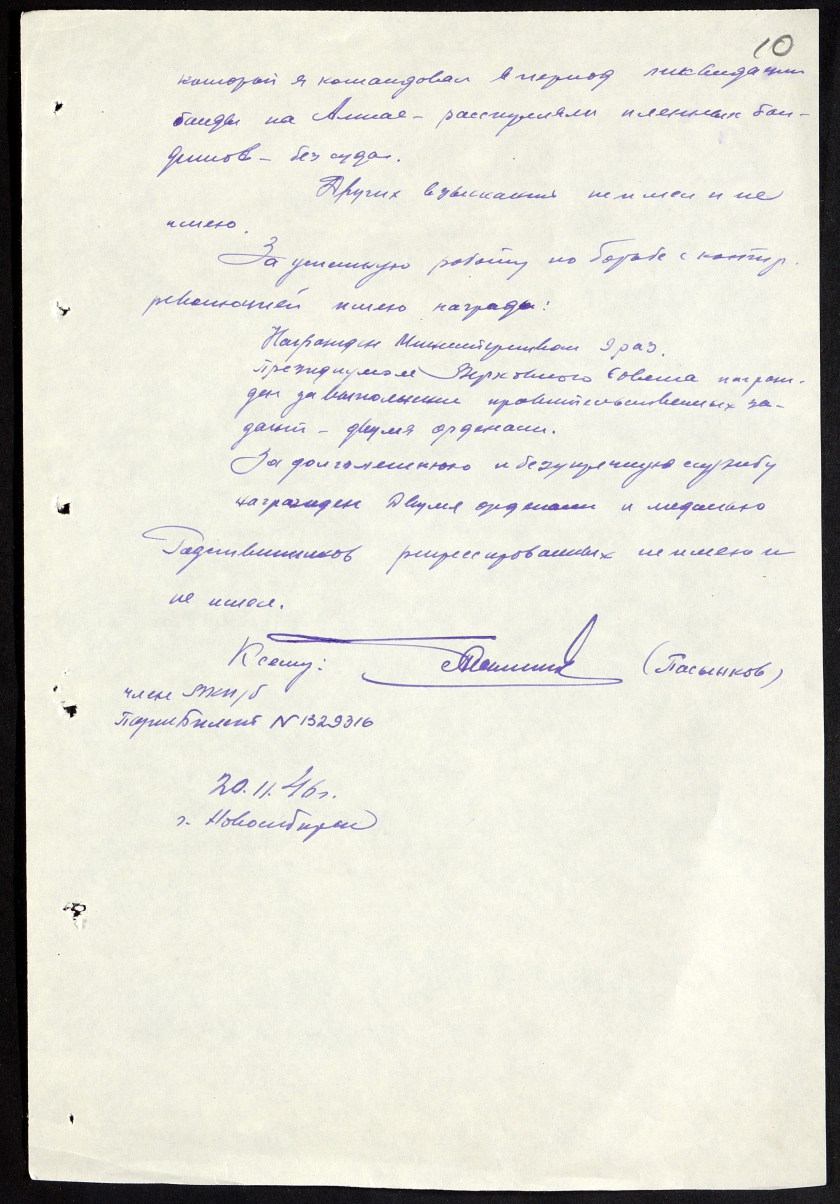 10
которой я командовал в период ликвидации
банды на Алтае – расстреляли пленных бан-
дитов – без суда.
Других взысканий не имел и не
имею.
За успешную работу по борьбе с контр.
революцией имею награды:
Награжден Министерством 9 раз.
Президиумом Верховного Совета награж-
ден за выполнение правительственных за-
даний – двумя орденами.
За долголетнюю и безупречную службу
награжден двумя орденами и медалью
Родственников репрессированных не имею и
не имел.
К сему: (Пасынков)
член ВКП/б
Партбилет N 1329316
20.11.46 г.
г. Новосибирск